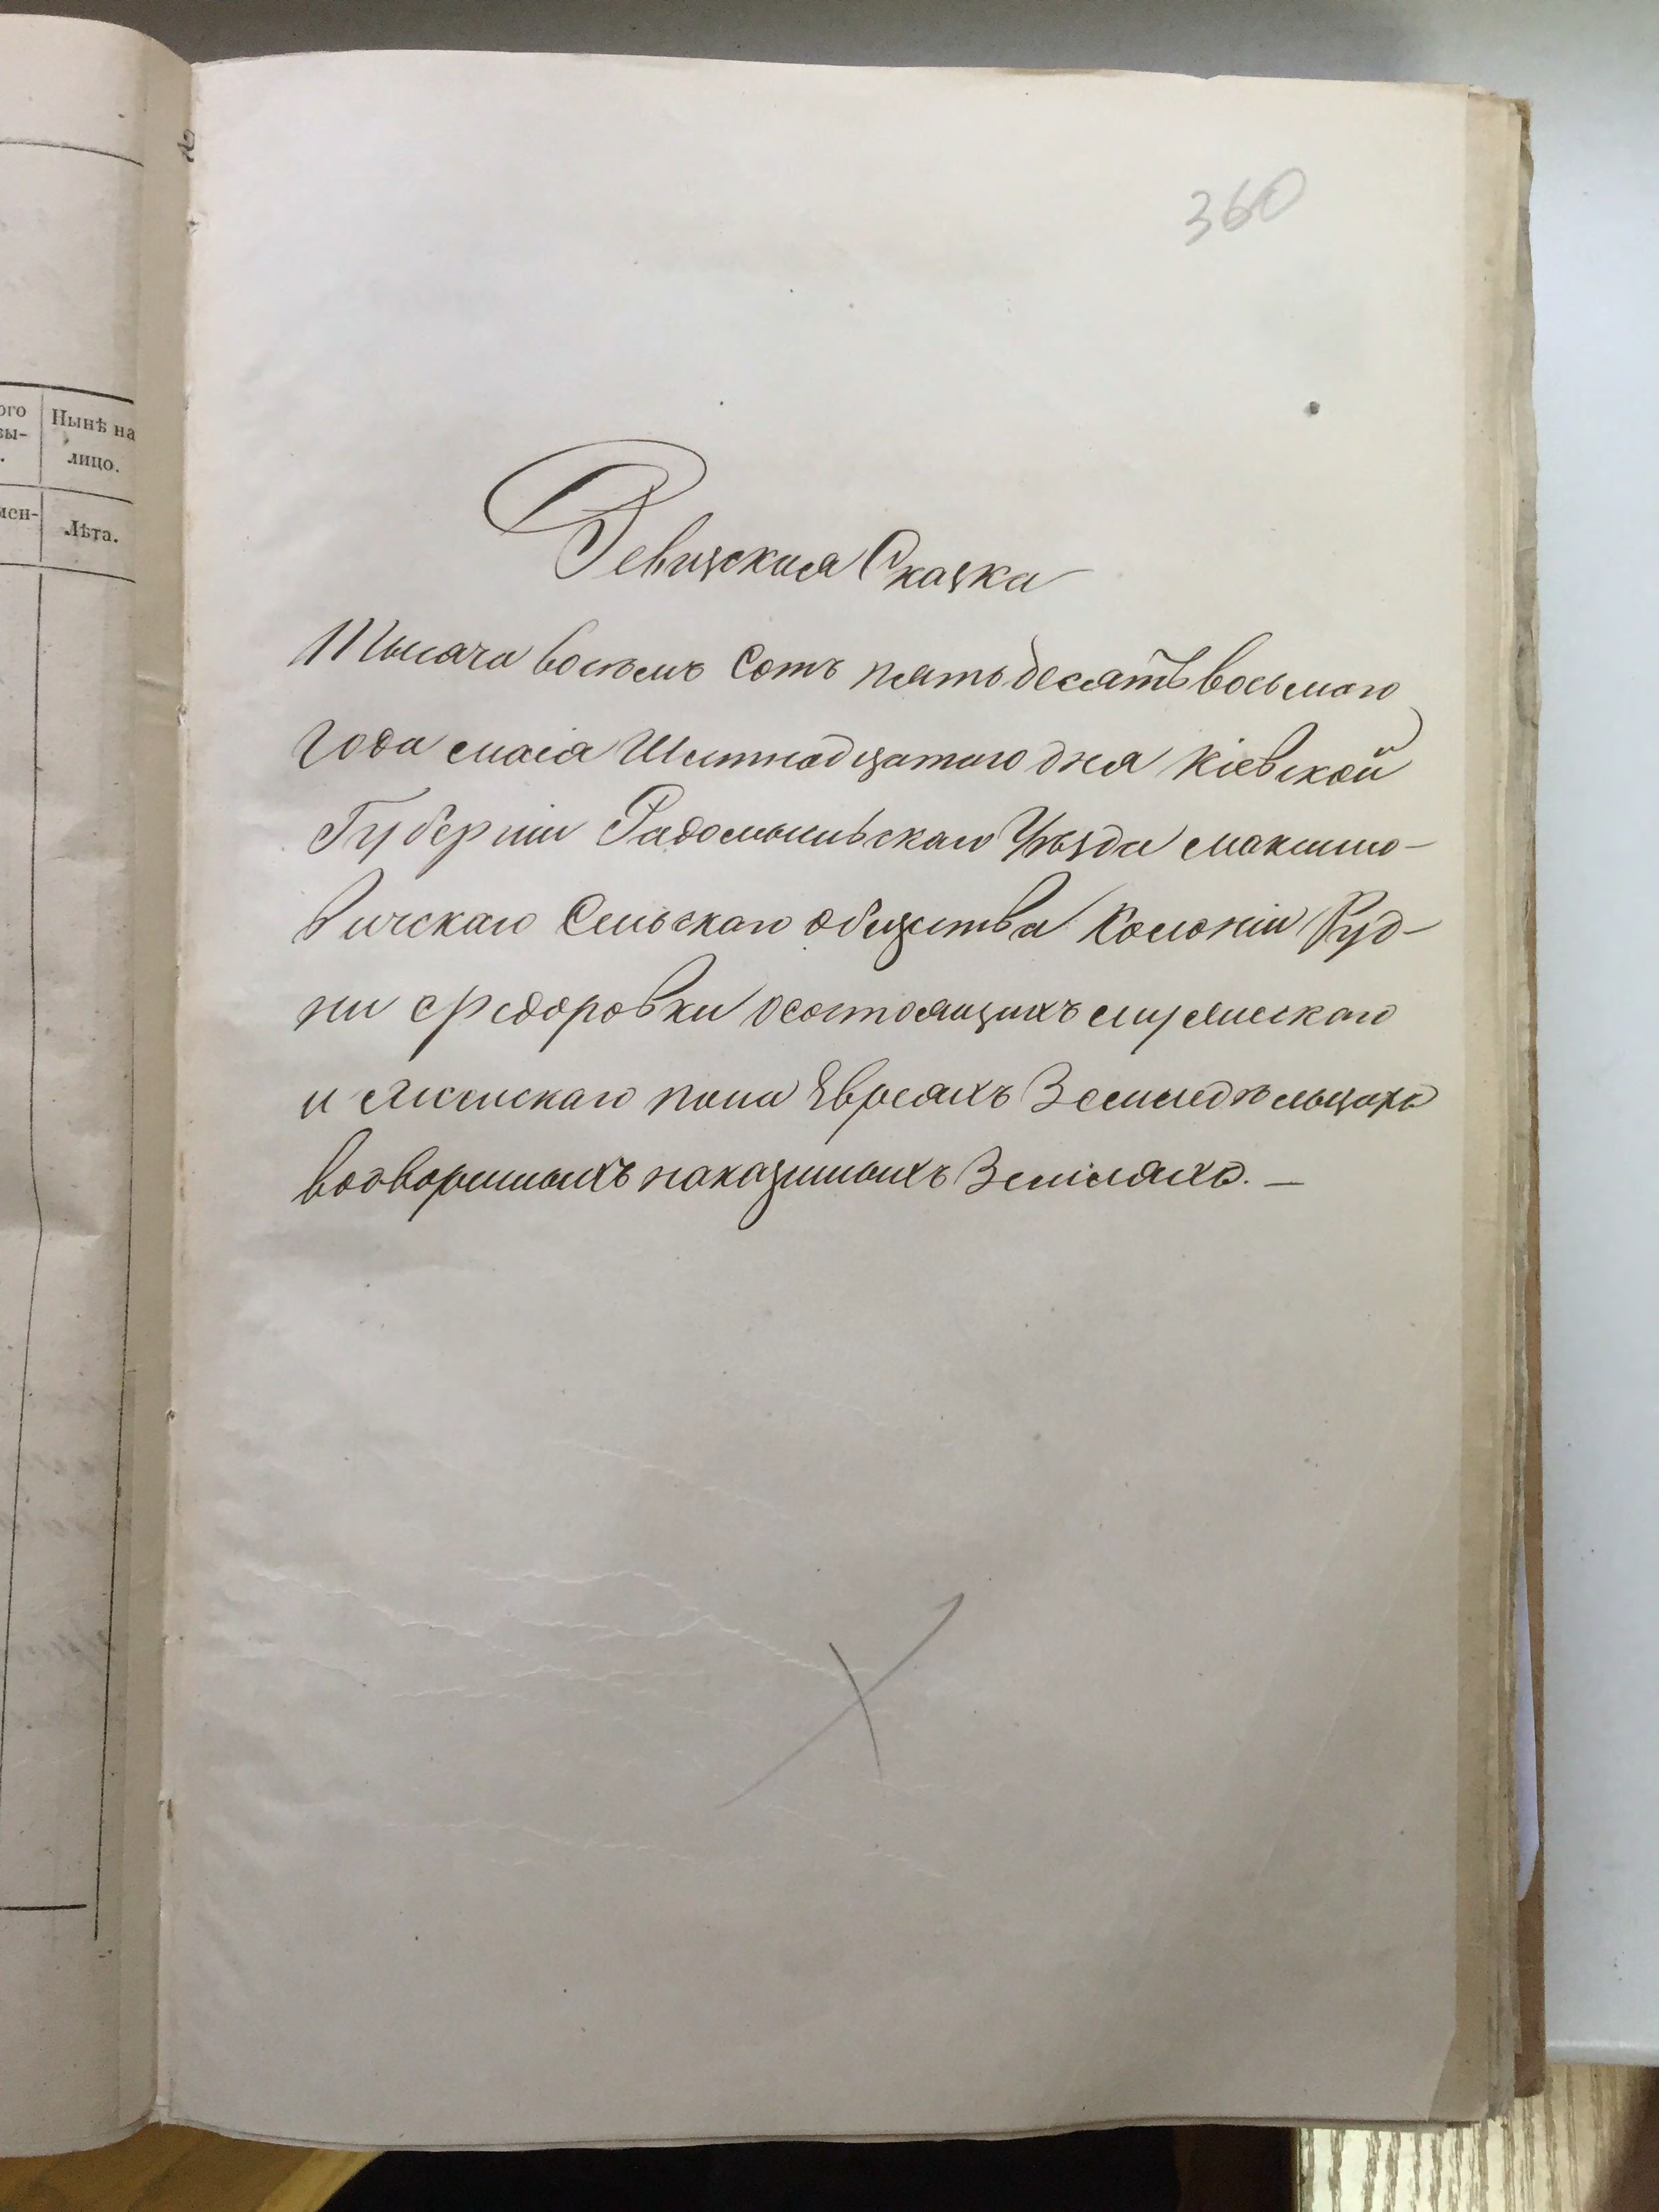 360
ого
вы-
Нынѣ на
лицо.
Лѣта.
Ревизская Сказка
Тысяча восемь Сотъ пятьдесятъ восьмаго
года маія Шестнадцатаго дня Кіевской
Губерніи Радомысльскаго Уѣзда Максимо-
вичскаго Сельскаго общества Колоніи Руд-
ни Федоровки осостоящихъ мужескаго
и женскаго пола Евреяхъ Земледѣльцахъ
водворенныхъ наказенныхъ Земляхъ. —